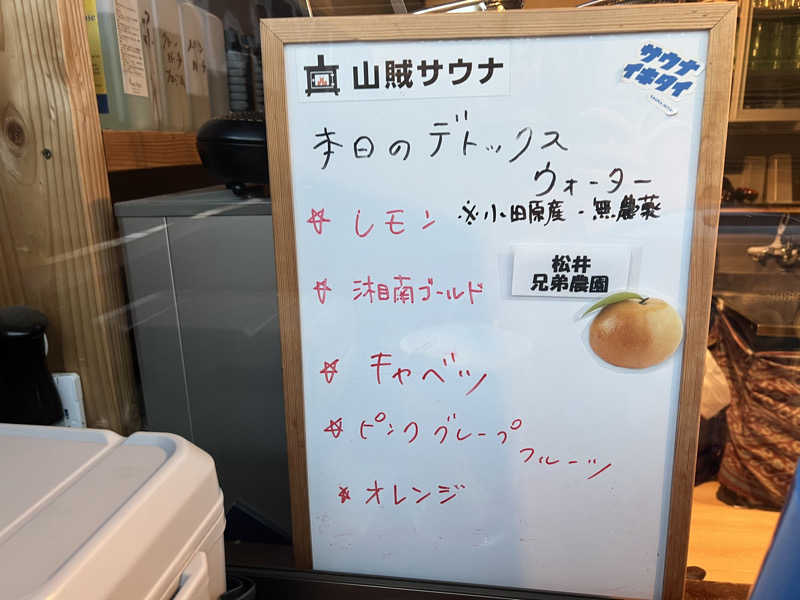 山賊サウナ
サウナ
イキタイ
本日のデトックス
ウォーター
☆ レモン ※小田原産・無農薬
☆ 湘南ゴールド
松井
兄弟農園
☆ キャベツ
☆ ピンクグレープ
フルーツ
☆ オレンジ